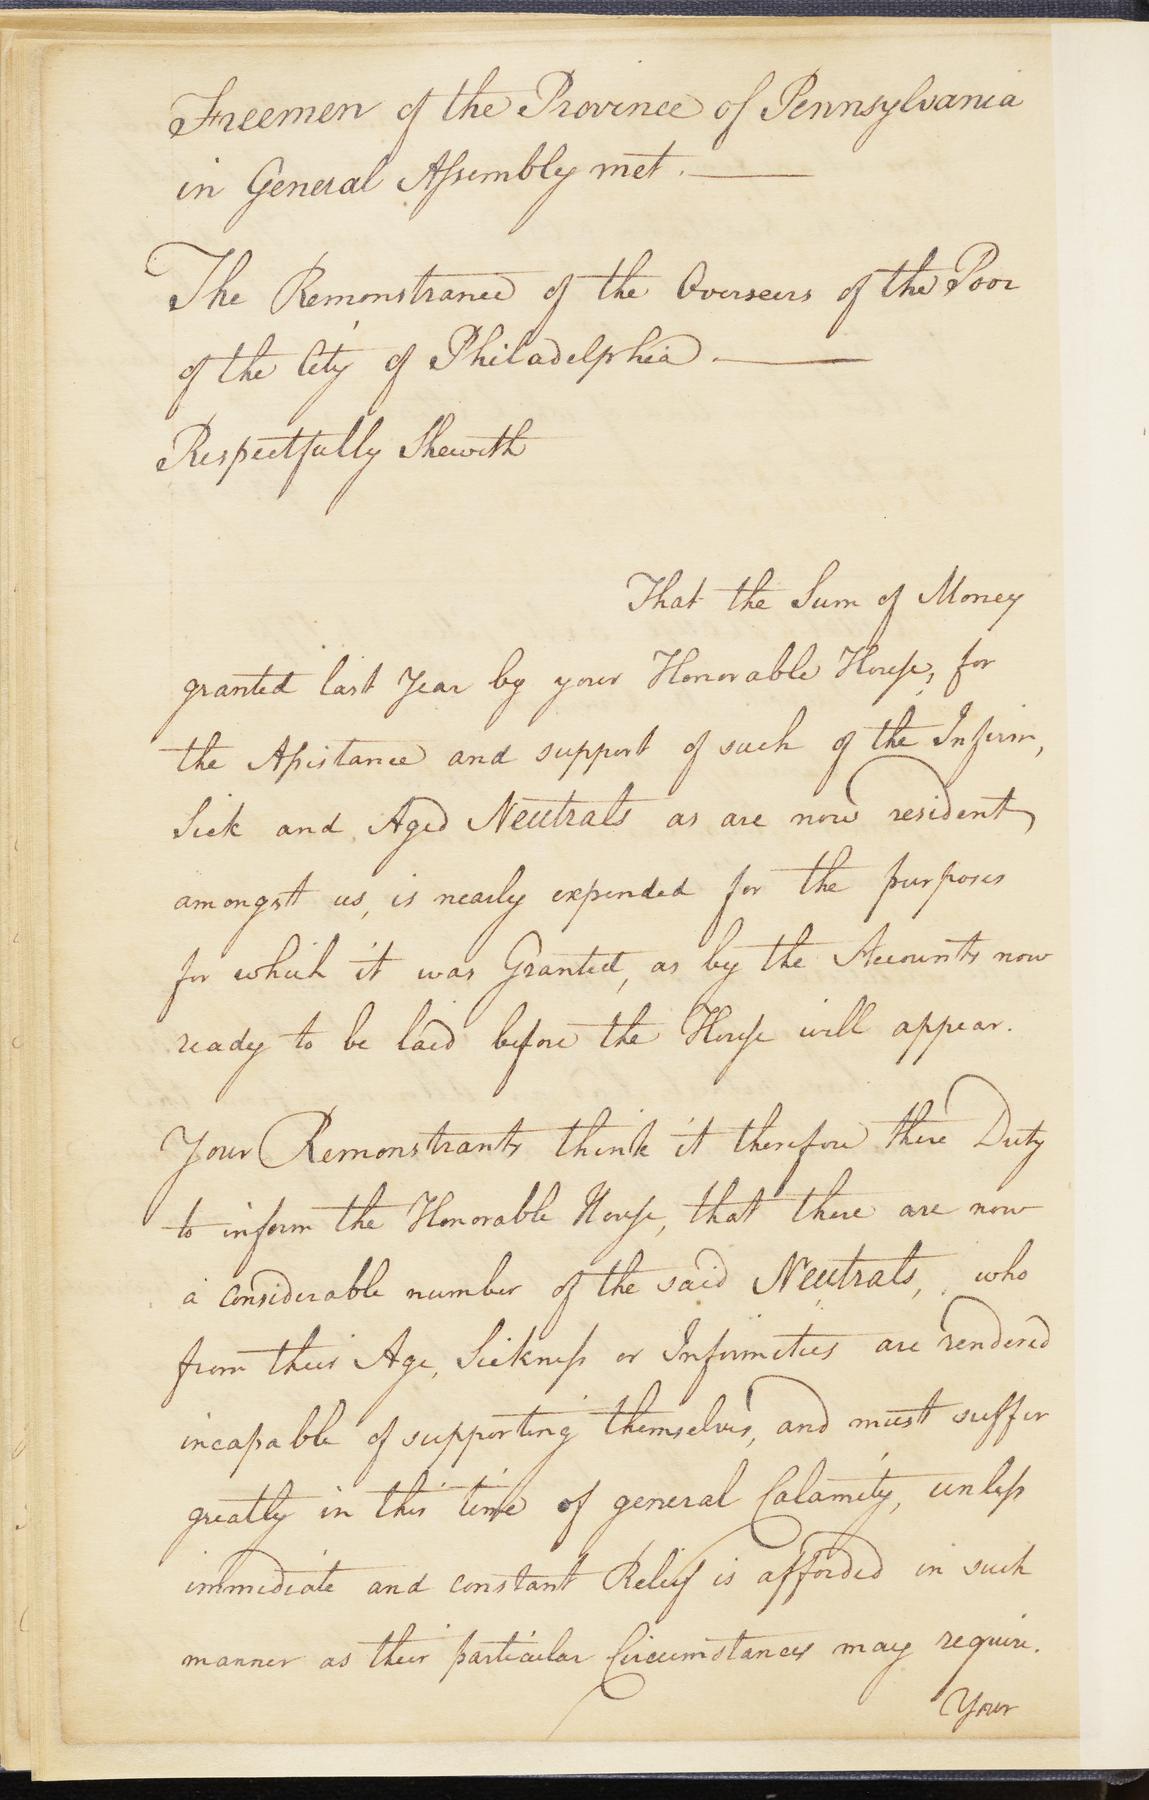 Freemen of the Province of Pennsylvania
in General Assembly met.
The Remonstrance of the Overseers of the Poor
of the City of Philadelphia.
Respectfully Sheweth
That the Sum of Money
granted last Year by your Honorable House, for
the Assistance and support of such of the Infirm,
Sick and Aged Neutrals as are now resident
amongst us, is nearly expended for the purposes
for which it was Granted, as by the Accounts now
ready to be laid before the House will appear.
Your Remonstrants think it therefore there Duty
to inform the Honorable House, that there are now
a considerable number of the said Neutrals, who
from their Age, Sickness or Infirmities are rendered
incapable of supporting themselves, and must suffer
greatly in this time of general Calamity, unless
immediate and constant Relief is afforded in such
manner as their particular Circumstances may require.
Your